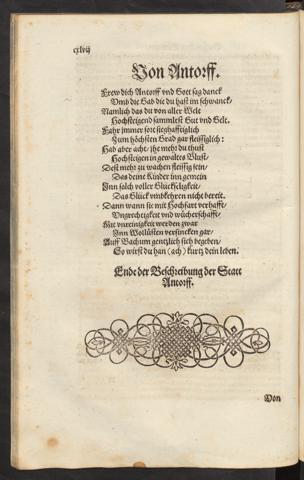 cxlvij
Von Antorff.
Frew dich Antorff vnd Gott sag danck
Vmb die Gab die du hast im schwanck/
Namlich das du von aller Welt
Hochsteigend sammlest Gut vnd Gelt.
Fahr immer fort sieghafftiglich
Zum höchsten Grad gar fleissiglich:
Hab aber acht/ ihe mehr du thust
Hochsteigen in gewaltes Blust/
Dest mehr zu wachen fleissig sein/
Das deine Kinder inn gemein
Inn solch voller Glückseligkeit/
Das Glück vmbkehren nicht bereit.
Dann wann sie mit Hochfart verhafft/
Vngrechtigkeit vnd wücherschafft/
Mit vnreinigkeit werden zwar
Inn Wollüsten versincken gar/
Auff Bachum gentzlich sich begeben/
So wirst du han (ach) kurtz dein leben.
Ende der Beschreibung der Statt
Antorff.
Von